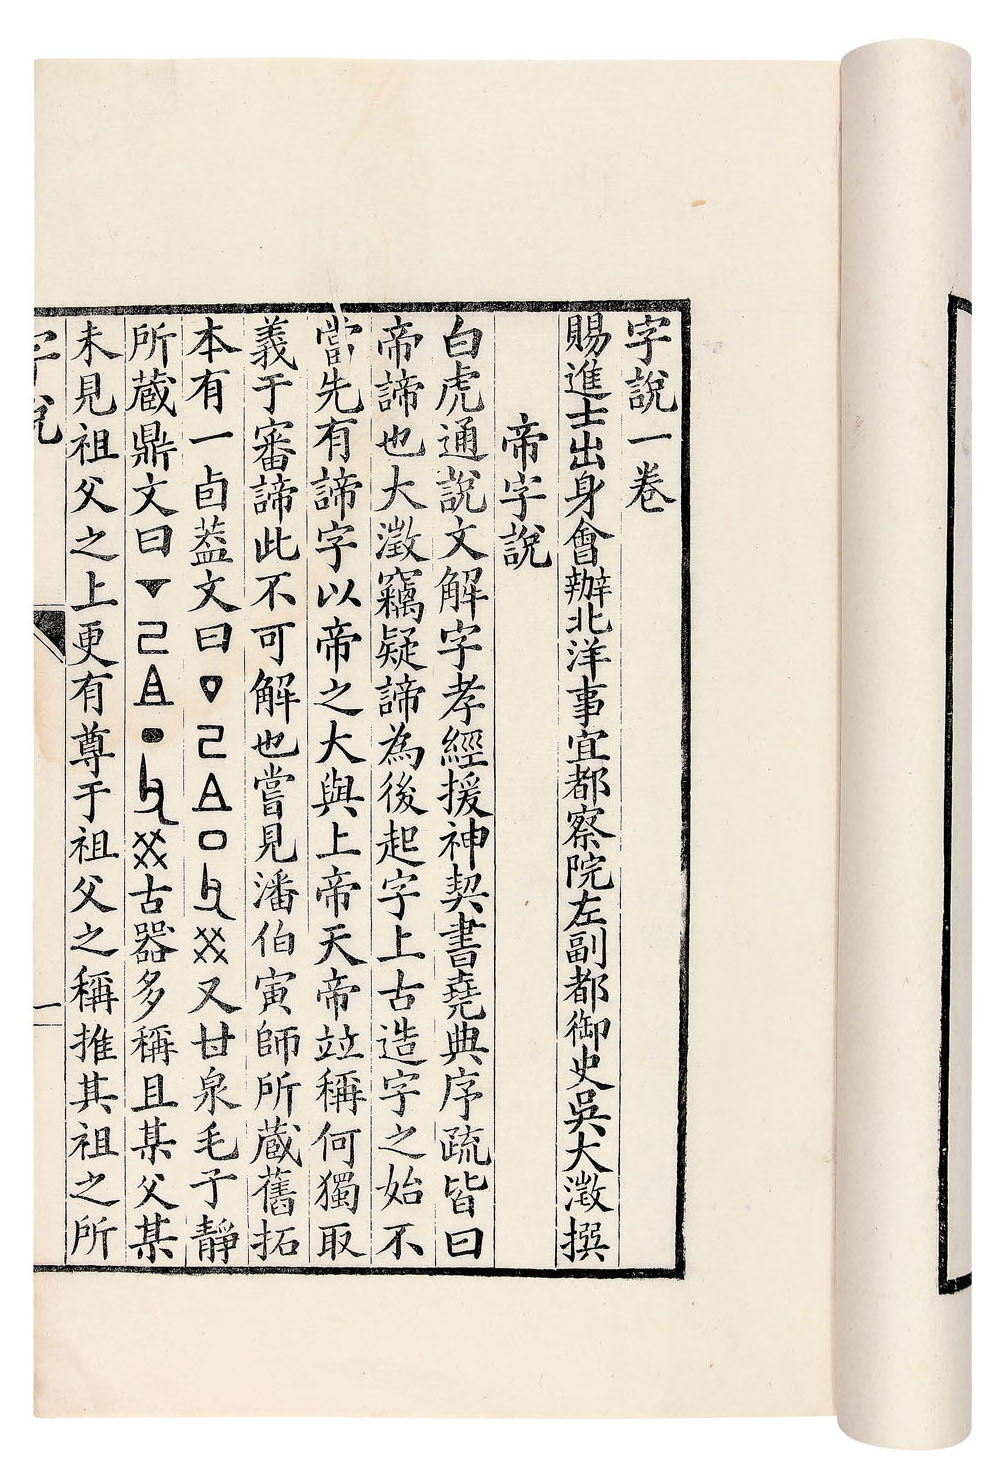 字說一卷
賜進士出身會辦北洋事宜都察院左副都御史吳大澂撰
帝字說
白虎通說文解字孝經援神契書堯典序疏皆曰
帝諦也大澂竊疑諦為後起字上古造字之始不
當先有諦字以帝之大與上帝天帝竝稱何獨取
義于審諦此不可解也嘗見潘伯寅師所蔵舊拓
本有一卣葢文曰又甘泉毛子靜
所蔵鼎文曰古器多稱且某父某
未見祖父之上更有尊于祖父之稱推其祖之所
字說
一